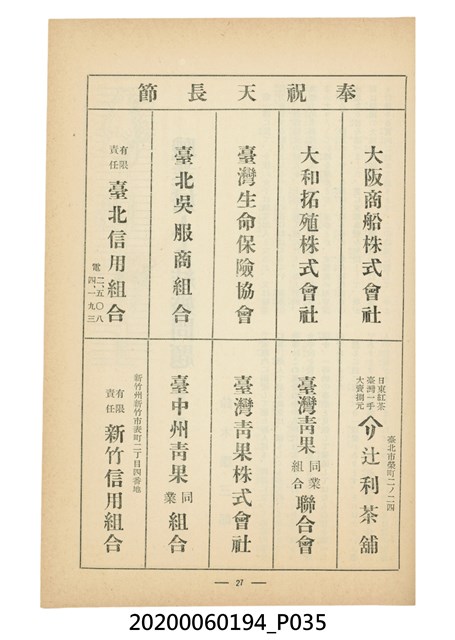 奉祝天長節
大阪商船株式會社
大和拓殖株式會社
臺灣生命保險協會
臺北吳服商組合
有限
責任
臺北信用組合
電
二、五〇八
四、一九三
日東紅茶
臺灣一手
大賣捌元
臺北市榮町二ノ二四
辻利茶舖
臺灣靑果
同業
組合
聯合會
臺灣靑果株式會社
臺中州靑果
同業
組合
新竹州新竹市表町二丁目四番地
有限
責任
新竹信用組合
— 27 —
20200060194_P035